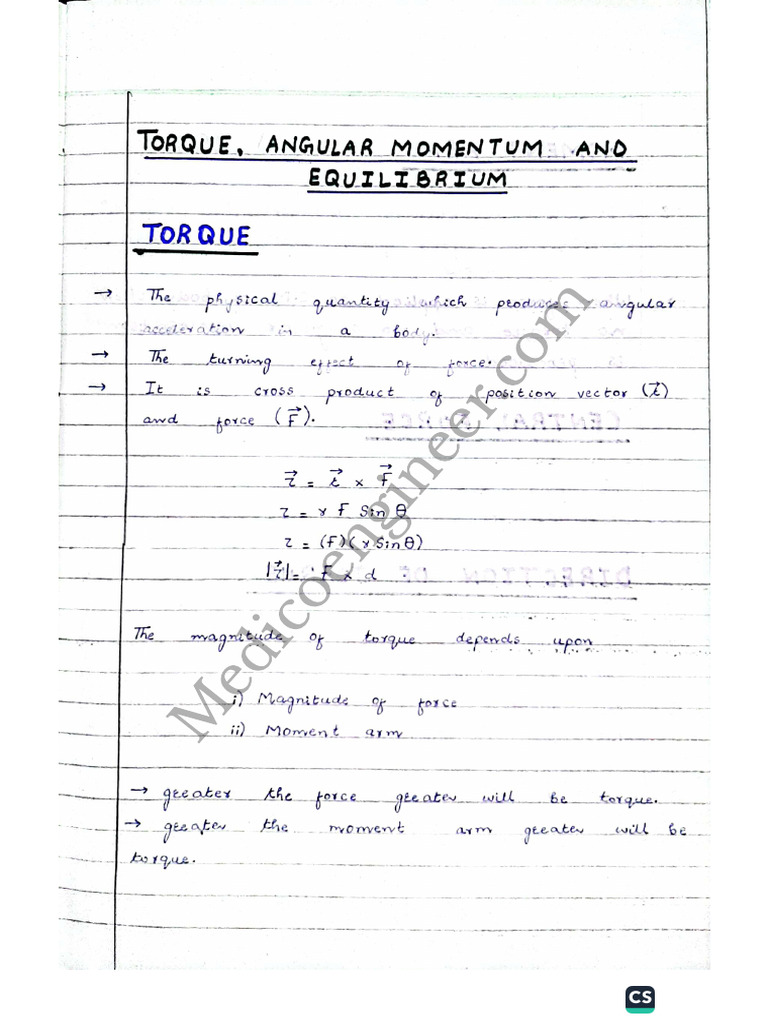 TORQUE, ANGULAR MOMENTUM AND
EQUILIBRIUM
TORQUE
→ The physical quantity which produces angular
acceleration in a body.
→ The turning effect of force.
→ It is cross product of position vector (r⃗)
and force (F⃗).
τ⃗ = r⃗ × F⃗
τ = r F Sin θ
τ = (F)(r Sin θ)
|τ⃗| = F × d
The magnitude of torque depends upon
i) Magnitude of force
ii) Moment arm
→ greater the force greater will be torque.
→ greater the moment arm greater will be
torque.
Medicoengineer.com
CS